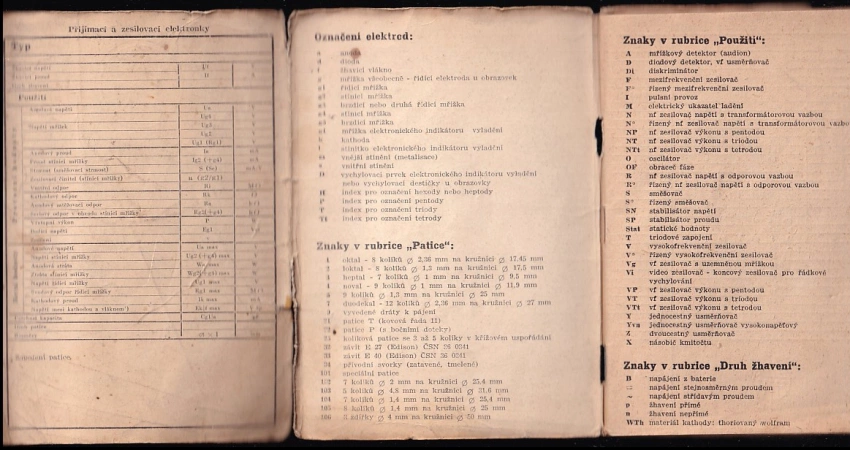 Přijímací a zesilovací elektronky
Typ
Použití
Anodové napětí Ua
Ug2
Napětí mřížek Ug3
Ug2
Ug1 (Rg1)
Anodový proud Ia mA
Proud stínící mřížky
Strmost (zesilovací strmost) S (Sc)
Vnitřní odpor Ri
Kathodový odpor Rk
Anodový odpor Ra
Výstupní výkon P
Anodové napětí Ua max
Napětí stínící mřížky
Anodová ztráta Wa max
Kathodový proud Ik max
Označení elektrod:
a anoda
d dioda
f žhavicí vlákno
g mřížka všeobecně - řídicí elektroda u obrazovek
g1 řídicí mřížka
g2 stínicí mřížka
g3 brzdicí nebo druhá řídicí mřížka
g4 stínicí mřížka
g5 brzdicí mřížka
mřížka elektronického indikátoru vyladění
k kathoda
stínítko elektronického indikátoru vyladění
m vnější stínění (metalisace)
s vnitřní stínění
D vychylovací prvek elektronického indikátoru vyladění
nebo vychylovací destičky u obrazovky
H index pro označení hexody nebo heptody
P index pro označení pentody
T index pro označení triody
Tt index pro označení tetrody
Znaky v rubrice „Patice":
1 oktal - 8 kolíků ∅ 2,36 mm na kružnici ∅ 17,45 mm
2 loktal - 8 kolíků ∅ 1,3 mm na kružnici ∅ 17,5 mm
3 heptal - 7 kolíků ∅ 1 mm na kružnici ∅ 9,5 mm
4 noval - 9 kolíků ∅ 1 mm na kružnici ∅ 11,9 mm
5 9 kolíků ∅ 1,3 mm na kružnici ∅ 25 mm
7 duodekal - 12 kolíků ∅ 2,36 mm na kružnici ∅ 27 mm
9 vyvedené dráty k pájení
21 patice T (kovová řada 11)
22 patice P (s bočními doteky)
kolíková patice se 3 až 5 kolíky v křížovém uspořádání
32 závit E 27 (Edison) ČSN 36 0341
33 závit E 40 (Edison) ČSN 36 0341
34 přívodní svorky (zatavené, tmelené)
101 speciální patice
102 7 kolíků ∅ 2 mm na kružnici ∅ 25,4 mm
103 5 kolíků ∅ 4,8 mm na kružnici ∅ 31,6 mm
104 7 kolíků ∅ 1,4 mm na kružnici ∅ 25,4 mm
105 8 kolíků ∅ 1,4 mm na kružnici ∅ 25 mm
106 3 zdířky ∅ 4 mm na kružnici ∅ 50 mm
Znaky v rubrice „Použití":
A mřížkový detektor (audion)
D diodový detektor, vf usměrňovač
Di diskriminátor
F mezifrekvenční zesilovač
F° řízený mezifrekvenční zesilovač
I pulsní provoz
M elektrický ukazatel ladění
N nf zesilovač napětí s transformátorovou vazbou
N° řízený nf zesilovač napětí s transformátorovou vazbou
NP nf zesilovač výkonu s pentodou
NT nf zesilovač výkonu s triodou
NTt nf zesilovač výkonu s tetrodou
O oscilátor
OF obraceč fáze
R nf zesilovač napětí s odporovou vazbou
R° řízený nf zesilovač napětí s odporovou vazbou
S směšovač
S° řízený směšovač
SN stabilisátor napětí
SP stabilisátor proudu
Stat statické hodnoty
T triodové zapojení
V vysokofrekvenční zesilovač
V° řízený vysokofrekvenční zesilovač
Vg vf zesilovač s uzemněnou mřížkou
Vi video zesilovač - koncový zesilovač pro řádkové
vychylování
VP vf zesilovač výkonu s pentodou
VT vf zesilovač výkonu s triodou
VTt vf zesilovač výkonu s tetrodou
Y jednocestný usměrňovač
Yvn jednocestný usměrňovač vysokonapěťový
Z dvoucestný usměrňovač
X násobič kmitočtu
Znaky v rubrice „Druh žhavení":
B napájení z baterie
= napájení stejnosměrným proudem
~ napájení střídavým proudem
p žhavení přímé
n žhavení nepřímé
WTh materiál kathody: thoriovaný wolfram